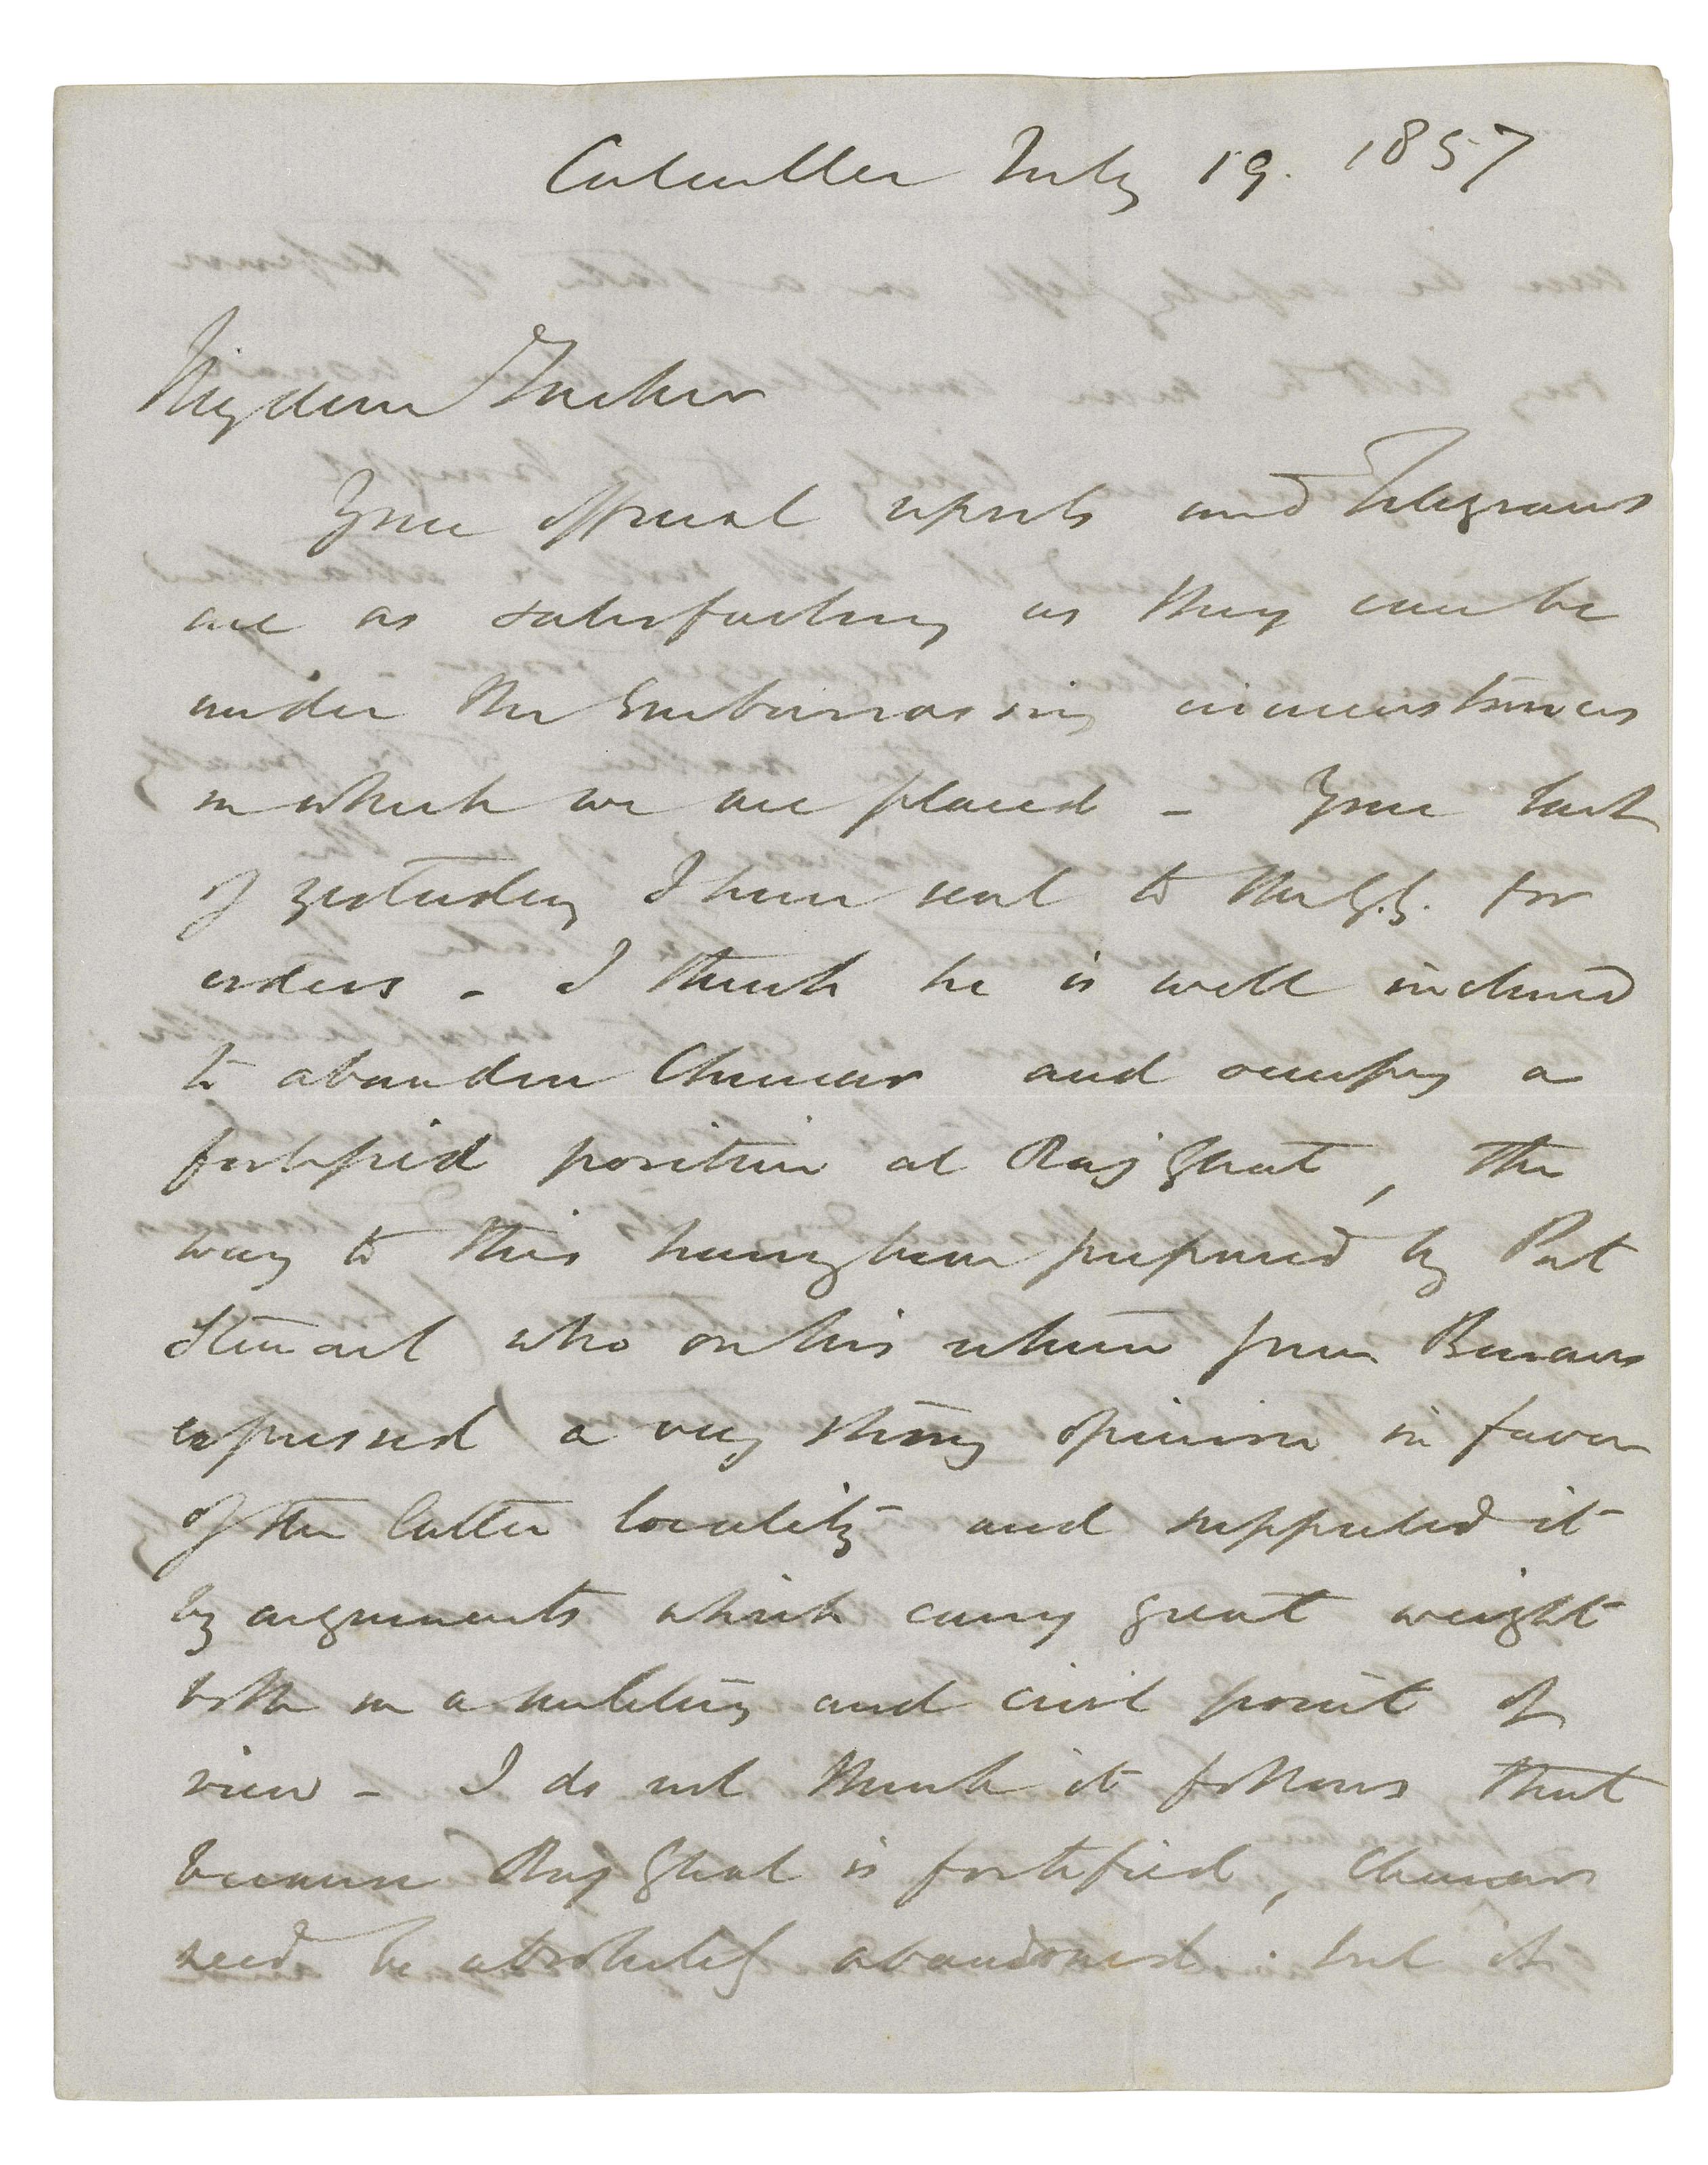 Calcutta July 19. 1857
My dear Tucker
Your official reports and Telegrams
are as satisfactory as they can be
under the Embarrassing circumstances
in which we are placed - Your last
of yesterday I have sent to the G.G. for
orders - I think he is well inclined
to abandon Chunar and occupy a
fortified position at Raj Ghat, the
way to this having been prepared by Pat
Stewart who on his return from Benares
expressed a very strong opinion in favor
of the latter locality and supported it
by arguments which carry great weight
both in a military and civil point of
view - I do not think it follows that
because Raj Ghat is fortified, Chunar
need be absolutely abandoned : but it